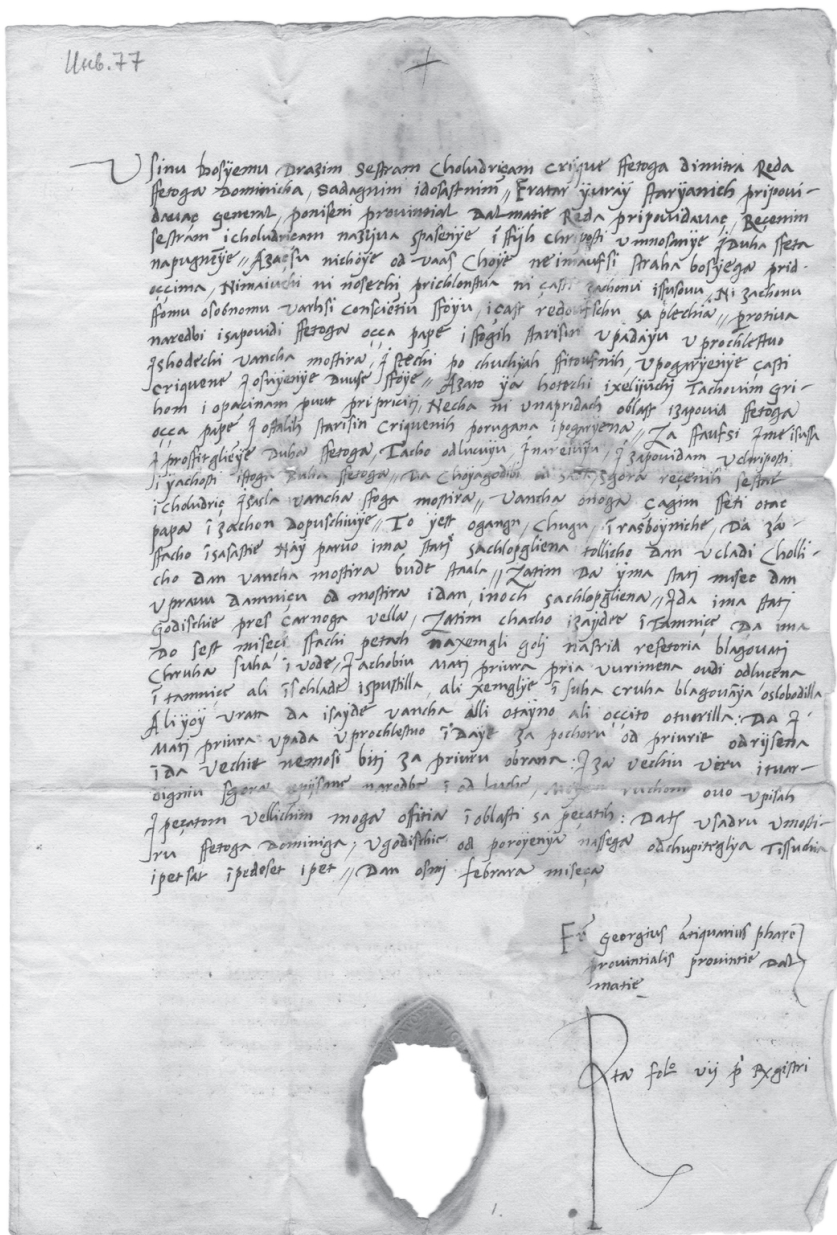 Инв. 77
U sinu bosÿemu Drazim Sestram Choludriçam Crique sfetoga dimitra Reda
sfetoga Dominicha, sadagnim idosastnim // Fratar ÿuraÿ starÿanich pripoui-
dauaç general, poniseni prouintial Dalmatie Reda pripouidauaç, Reçenim
sestram icholudriçam naziua spasenÿe i sfijh chriposti umnosenÿe j Duha sfeta
napugnenÿe // Azaçsu nichoÿe od uaas Choÿe neimaufsi straha bosÿega prid
oçcima, Nimaiuchi ni nosechi prichlonstua ni çasti zachonu issusouu, Ni zachonu
ffomu osobnomu varhsi consciëtiu sfoÿu, i çast redoufschu sa plechia // protiua
naredbi isapouidi sfetoga oçca pape i sfogih starisin upadaÿu u prochlestuo
jshodechi uancha mostira, j stechi po chuchÿah sfitoufnih, upogarÿenÿe çasti
Criquene j osuÿenÿe Duuse sfoÿe // Azato ÿa hotechi ixeliyuchj Tachouim Gri-
hom i opacinam puut pripriçitj, Necha ni unapridach oblast izapouid sfetoga
oçca pape j ostalih starisin Criquenih porugana ipogarÿena // Za ffaufsi jme isussa
j prosfitglienÿe Duha sfetoga, Tacho odluçuÿu, j nareiuÿu, j zapouidam uchriposti
i ÿachosti istoga Duha sfetoga // Da Choÿagodibi od sgora reçenih sestar
icholudriç jsasla uancha sfoga mostira // uancha onoga çagim sfeti otac
papa i zachon dopuschiuÿe // To ÿest ogangn, Chugu, i rasboÿniche, Da za
ffacho isasastie Naÿ paruo ima statj sachlopgliena tollicho dan ucladi Cholli-
cho dan uancha mostira bude staala // Zatim da ÿma statj misec dan
upraui damniçu od mostira idan, inoch sachlopgliena // jda ima statj
godischie pres çarnoga uella, Zatim chacho izaÿde i Tamniçe Da ima
Do sest miseçi ffachi petach naxemgli golj nasrid refetoria blagouati
Chruha suha i uode, jachobiu mati priura pria uurimena oudi odlucena
i tamniçe ali ischlade ispustilla, ali xemglie i suha cruha blagouanÿa oslobodilla
Ali ÿoÿ urata da isaÿde uancha alli otaÿno ali oççito otuorilla : Da j
mati priura upada uprochlestuo i daÿe za pochoru od priurie odrijsena
i da uechie nemosi biti za priuru obrana : jza uechiu uëru ituar-
dignu sgora upijsane naredbe i od ludie, ruchom ouo upisah
j peçatom uellichim moga ofitia i oblasti sa peçatih : Dati usadru umosti-
ru sfetoga Dominiga, ugodischie od poroÿenÿa nassega odchupiteglÿa Tissuchia
ipetsat ipedeset ipet // Dan osmj febrara miseça
Fr Georgius ãtiquarius phareñ
prouintialis prouintie Dal
matie
Rta folo vij pi Rxgistri
1.